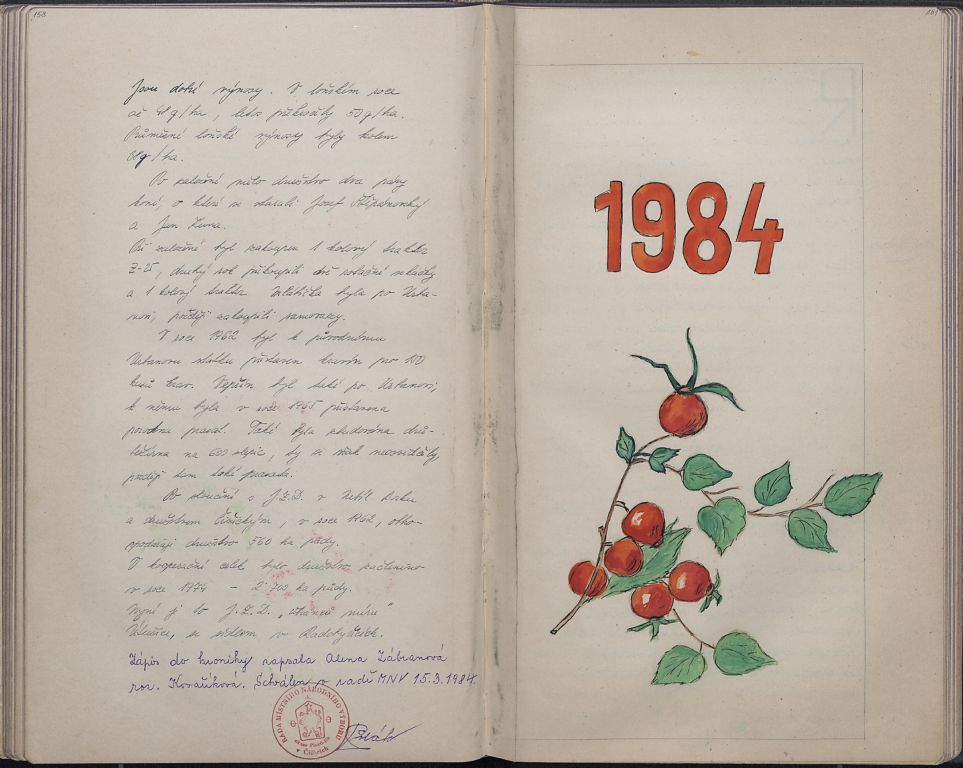 158
Jsou dobré výnosy. V loňském roce
až 48 q/ha, letos překročily 50 q/ha.
Průměrné loňské výnosy byly kolem
q/ha.
Po založení mělo družstvo dva páry
koní, o které se starali Josef Štěpánovský
a Jan Kuna.
Při založení byl zakoupen 1 kolový traktor
Z-25, druhý rok přikoupili dvě rotační sekačky
a 1 kolový traktor. Mlátička byla po Urba-
novi, později zakoupili samovazy.
V roce 1962 byl k původnímu
Urbanovu statku přistaven kravín pro 100
kusů krav. Vepřín byl také po Urbanovi,
k němu byla v roce 1965 přistavena
porodna prasat. Také byla vybudována drů-
bežárna na 600 slepic, ty se však neosvědčily,
později tam byla prasata.
Po sloučení s J.Z.D. v
a družstvem Čížickým, v roce 1962, obho-
spodařuji družstvo 560 ha půdy.
V kooperační celek bylo družstvo začleněno
v roce 1974 - 2 700 ha půdy.
Nyní je to J.Z.D. „Obránců míru"
se sídlem v Radobyčicích.
Zápis do kroniky napsala Alena Zábranová
roz. Kovaříková. Schválen v radě MNV 15.3.1984.
RADA MÍSTNÍHO NÁRODNÍHO VÝBORU
v Čížicích
1984